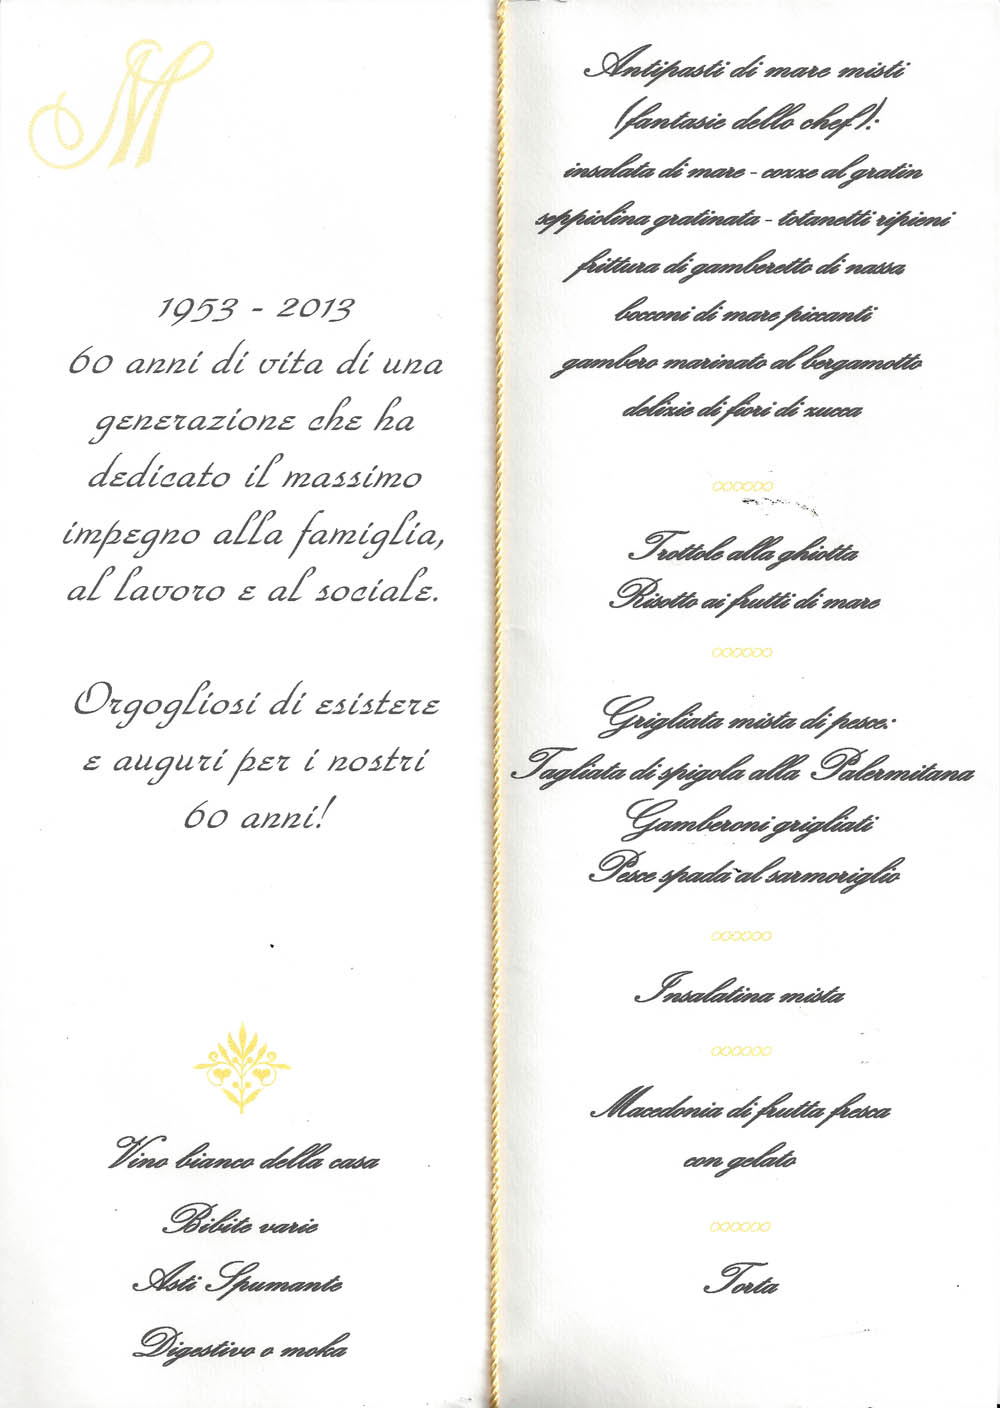 M
1953 - 2013
60 anni di vita di una
generazione che ha
dedicato il massimo
impegno alla famiglia,
al lavoro e al sociale.
Orgogliosi di esistere
e auguri per i nostri
60 anni!
Vino bianco della casa
Bibite varie
Asti Spumante
Digestivo o moka
Antipasti di mare misti
(fantasie dello chef):
insalata di mare - cozze al gratin
seppiolina gratinata - totanetti ripieni
frittura di gamberetto di nassa
bocconi di mare piccanti
gambero marinato al bergamotto
delizie di fiori di zucca
Trottole alla ghiotta
Risotto ai frutti di mare
Grigliata mista di pesce:
Tagliata di spigola alla Palermitana
Gamberoni grigliati
Pesce spada al sarmoriglio
Insalatina mista
Macedonia di frutta fresca
con gelato
Torta